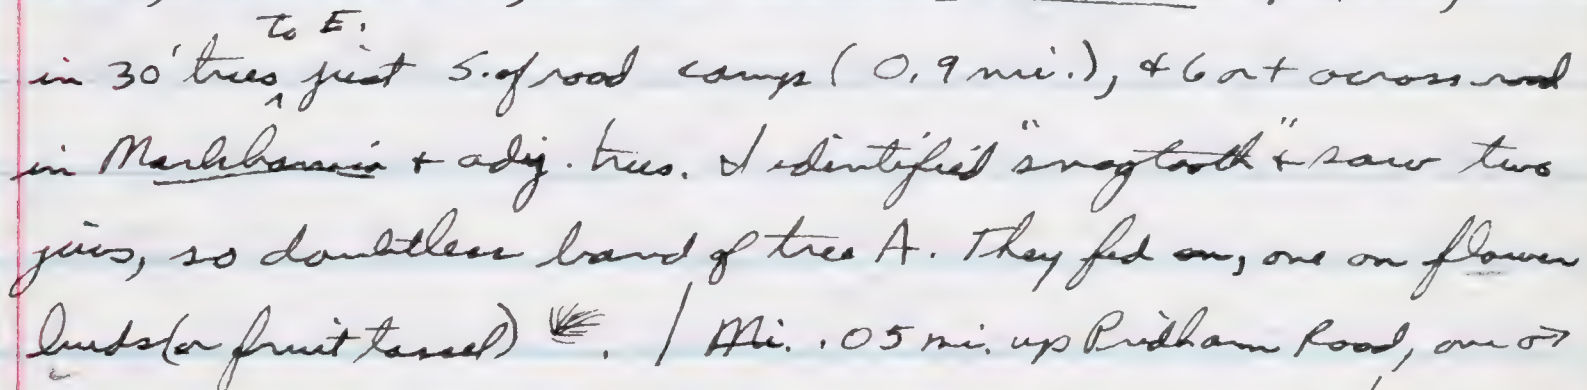 to E.
in 30' trees ^ just S. of road camp (0.9 mi.), + 6 or + across road
in Markhamia + adj. trees. I identified "snagtooth" + saw two
juvs, so doubtless band of tree A. They fed on, one on flower
buds (or fruit tassel) . / Mi. .05 mi. up Pridham Road, one ♂